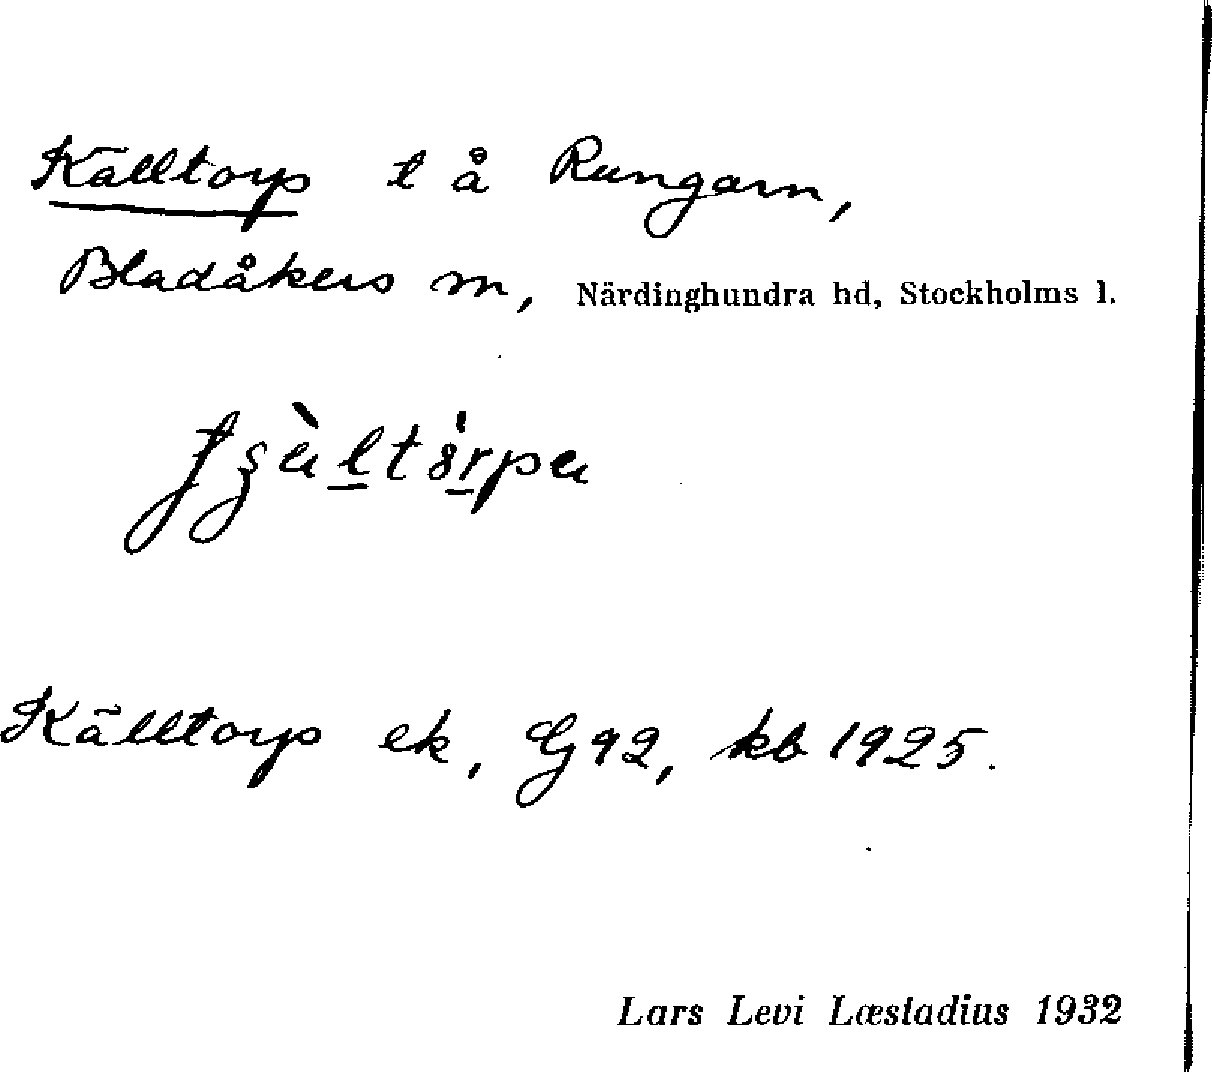 Källtorp t å Rungarn,
Bladåkers sn, Närdinghundra hd, Stockholms l.
Källtorp ek, G92, kb 1925.
Lars Levi Læstadius 1932